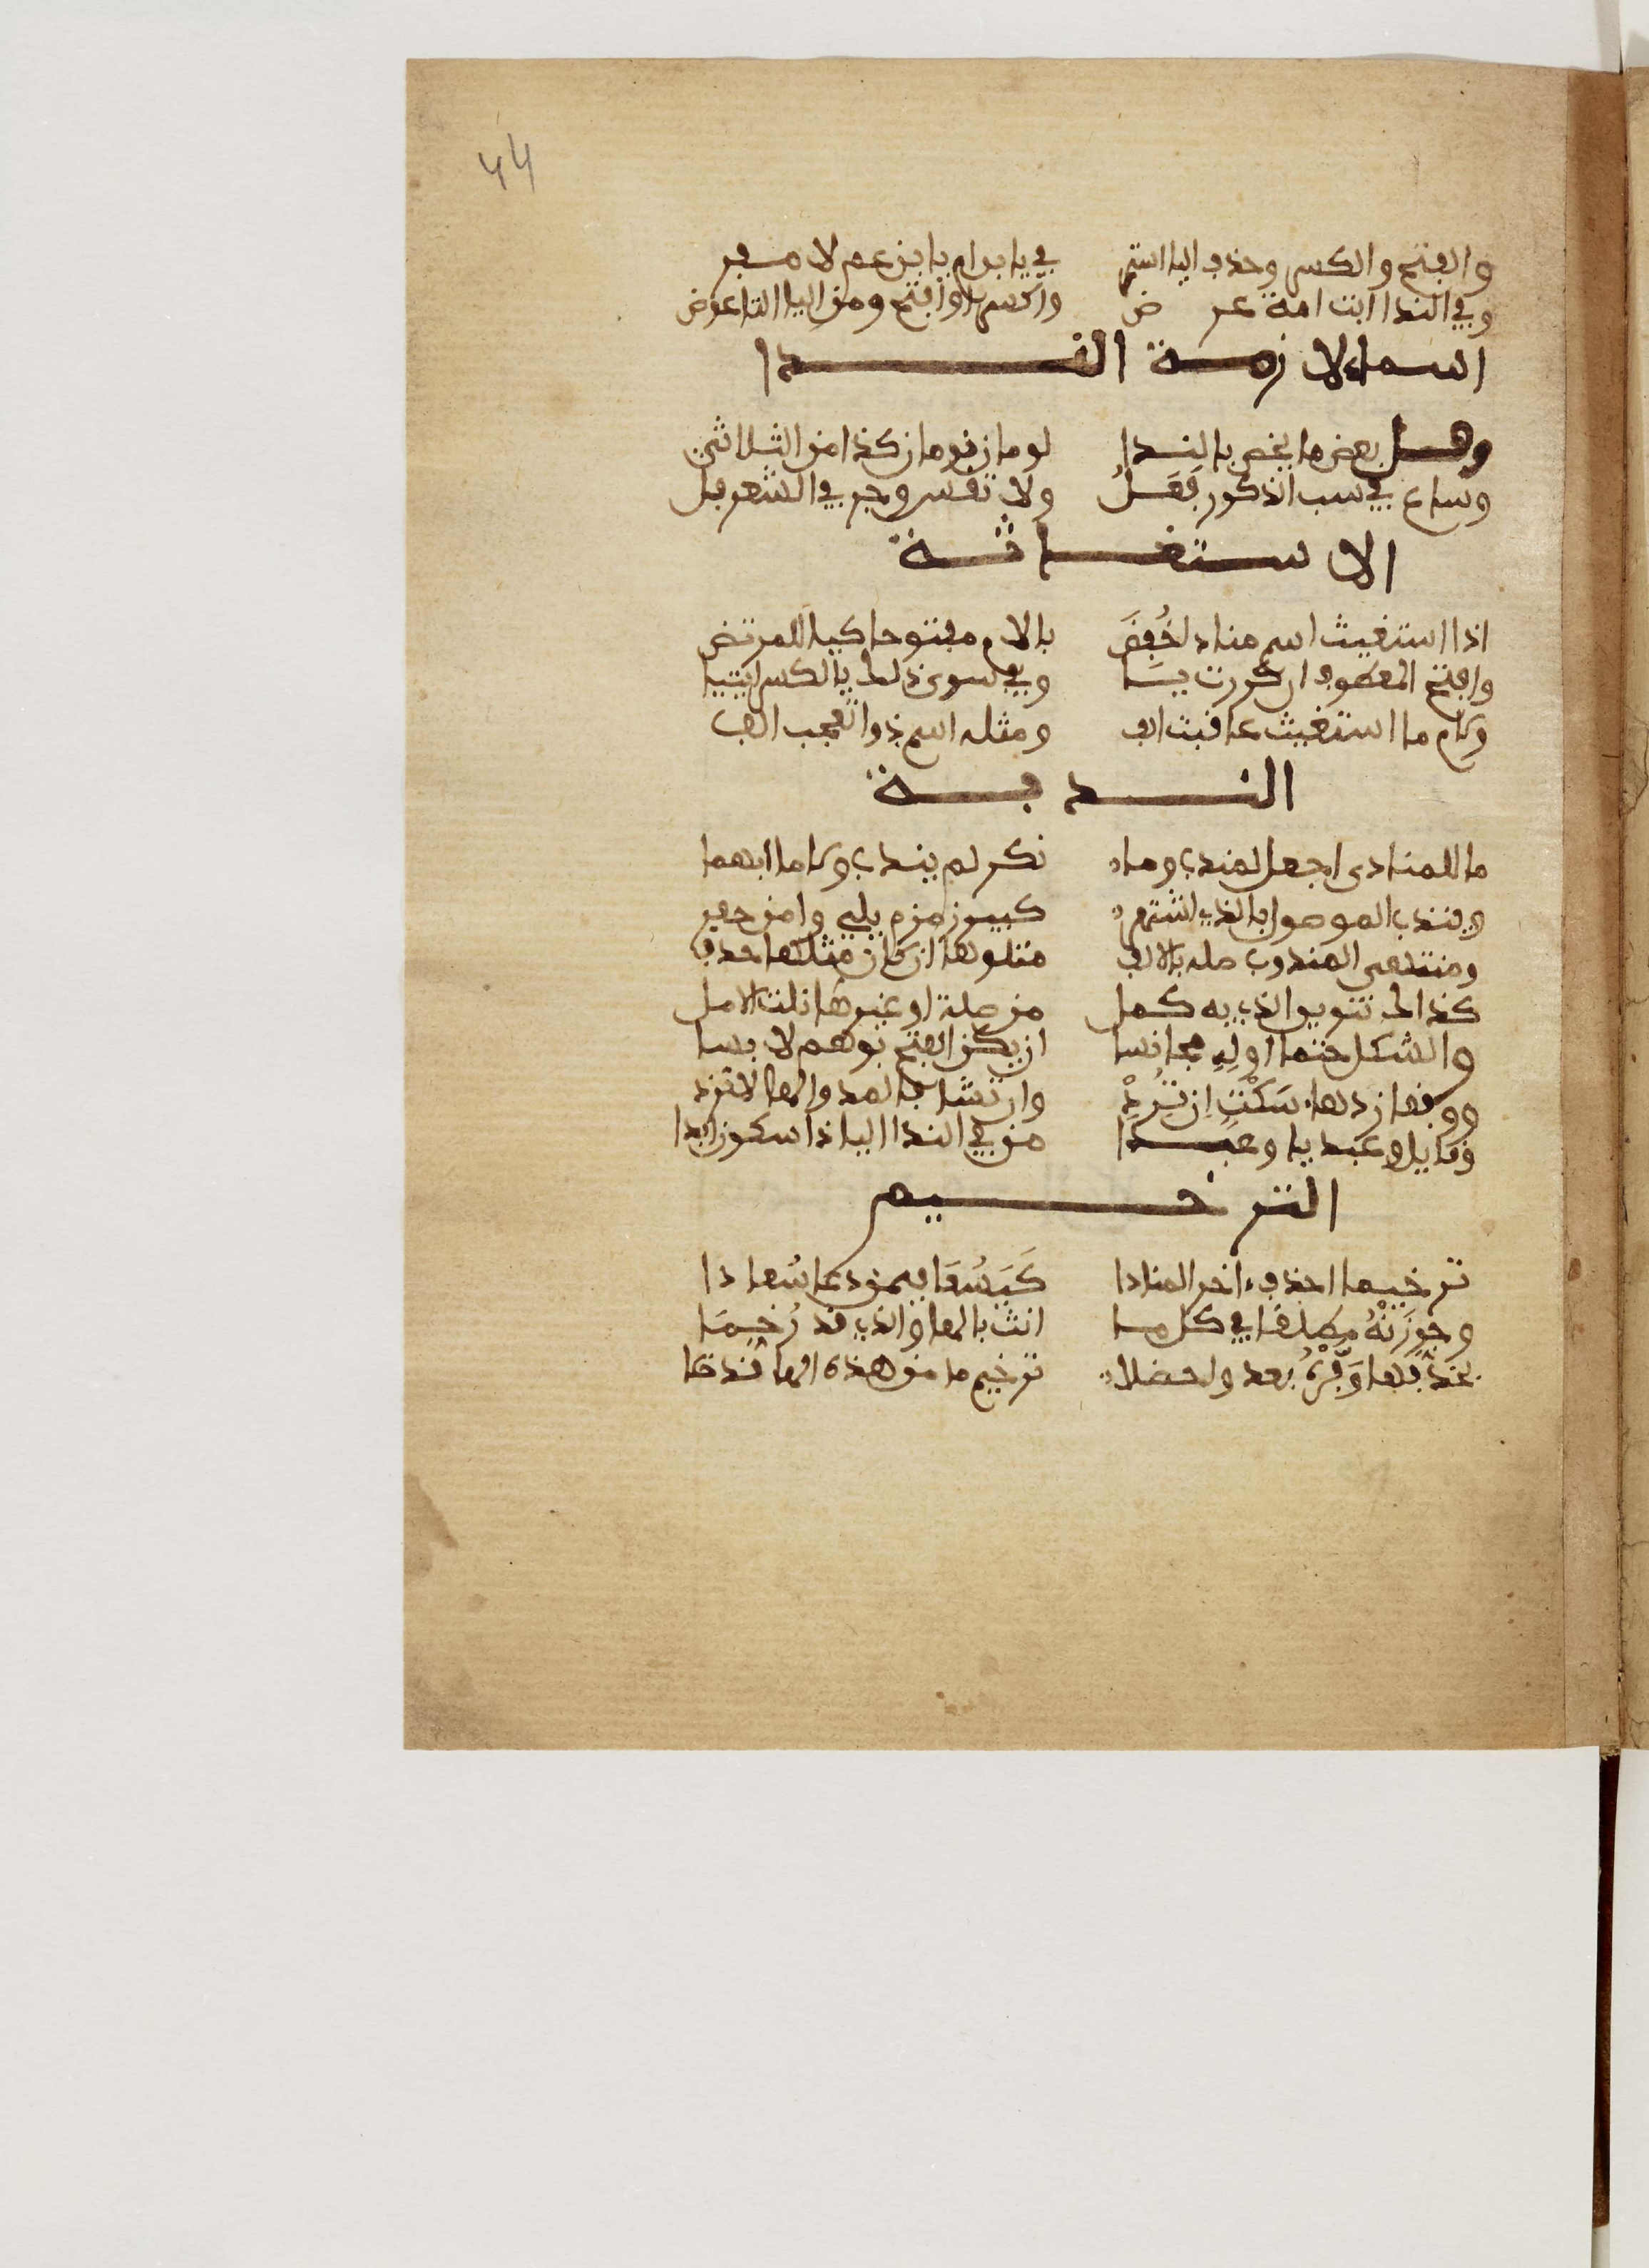 44
والفتح والكسر وحذف اليا استمر في يا بن ام يا بن عم لا مفر
وفي الندا ابت امت عرض واكسر او افتح ومن اليا التا عوض
اسماء لازمة الندا
وفل بعض ما يخص بالندا لومان نومان كذا من الثلاثي
وشاع في سب الذكور فُعَلُ ولا تقس وجر في الشعر فل
الاستغاثة
اذا استغيث اسم منادى خُفِضَ بالام مفتوحا كيا للمرتضى
وافتح المعطوف ان كررت يا وفي سوى ذلك بالكسر ايتيا
ولام ما استغيث عاقبت الف ومثله اسم ذو تعجب الف
الندبة
ما للمنادى اجعل لمندوب وما نكر لم يندب ولا ما ابهما
ويندب الموصول بالذي اشتهر كبير زمزم يلي وا من حفر
ومنتهى المندوب صله بالالف متلوها ان كان مثلها حذف
كذاك تنوين الذي به كمل من صلة او غيرها نلت الامل
والشكل حتما اوله مجانسا ان يكن الفتح بوهم لابسا
ووقفا زد هاء سَكْتٍ ان تُرِدْ وان تشا فالمد والها لا تزد
وقايل وا عبديا وا عبدا من في الندا اليا ذا سكون ابدا
الترخيم
ترخيما احذف اخر المنادا كَيَسُعَا فيمن دعا سُعادا
وجوزنْهُ مطلقا في كل ما انث بالها والذي قد رُخِّمَا
بحذفها وَفِّرْهُ بعد واحضلا ترخيم ما من هذه الها قد خلا